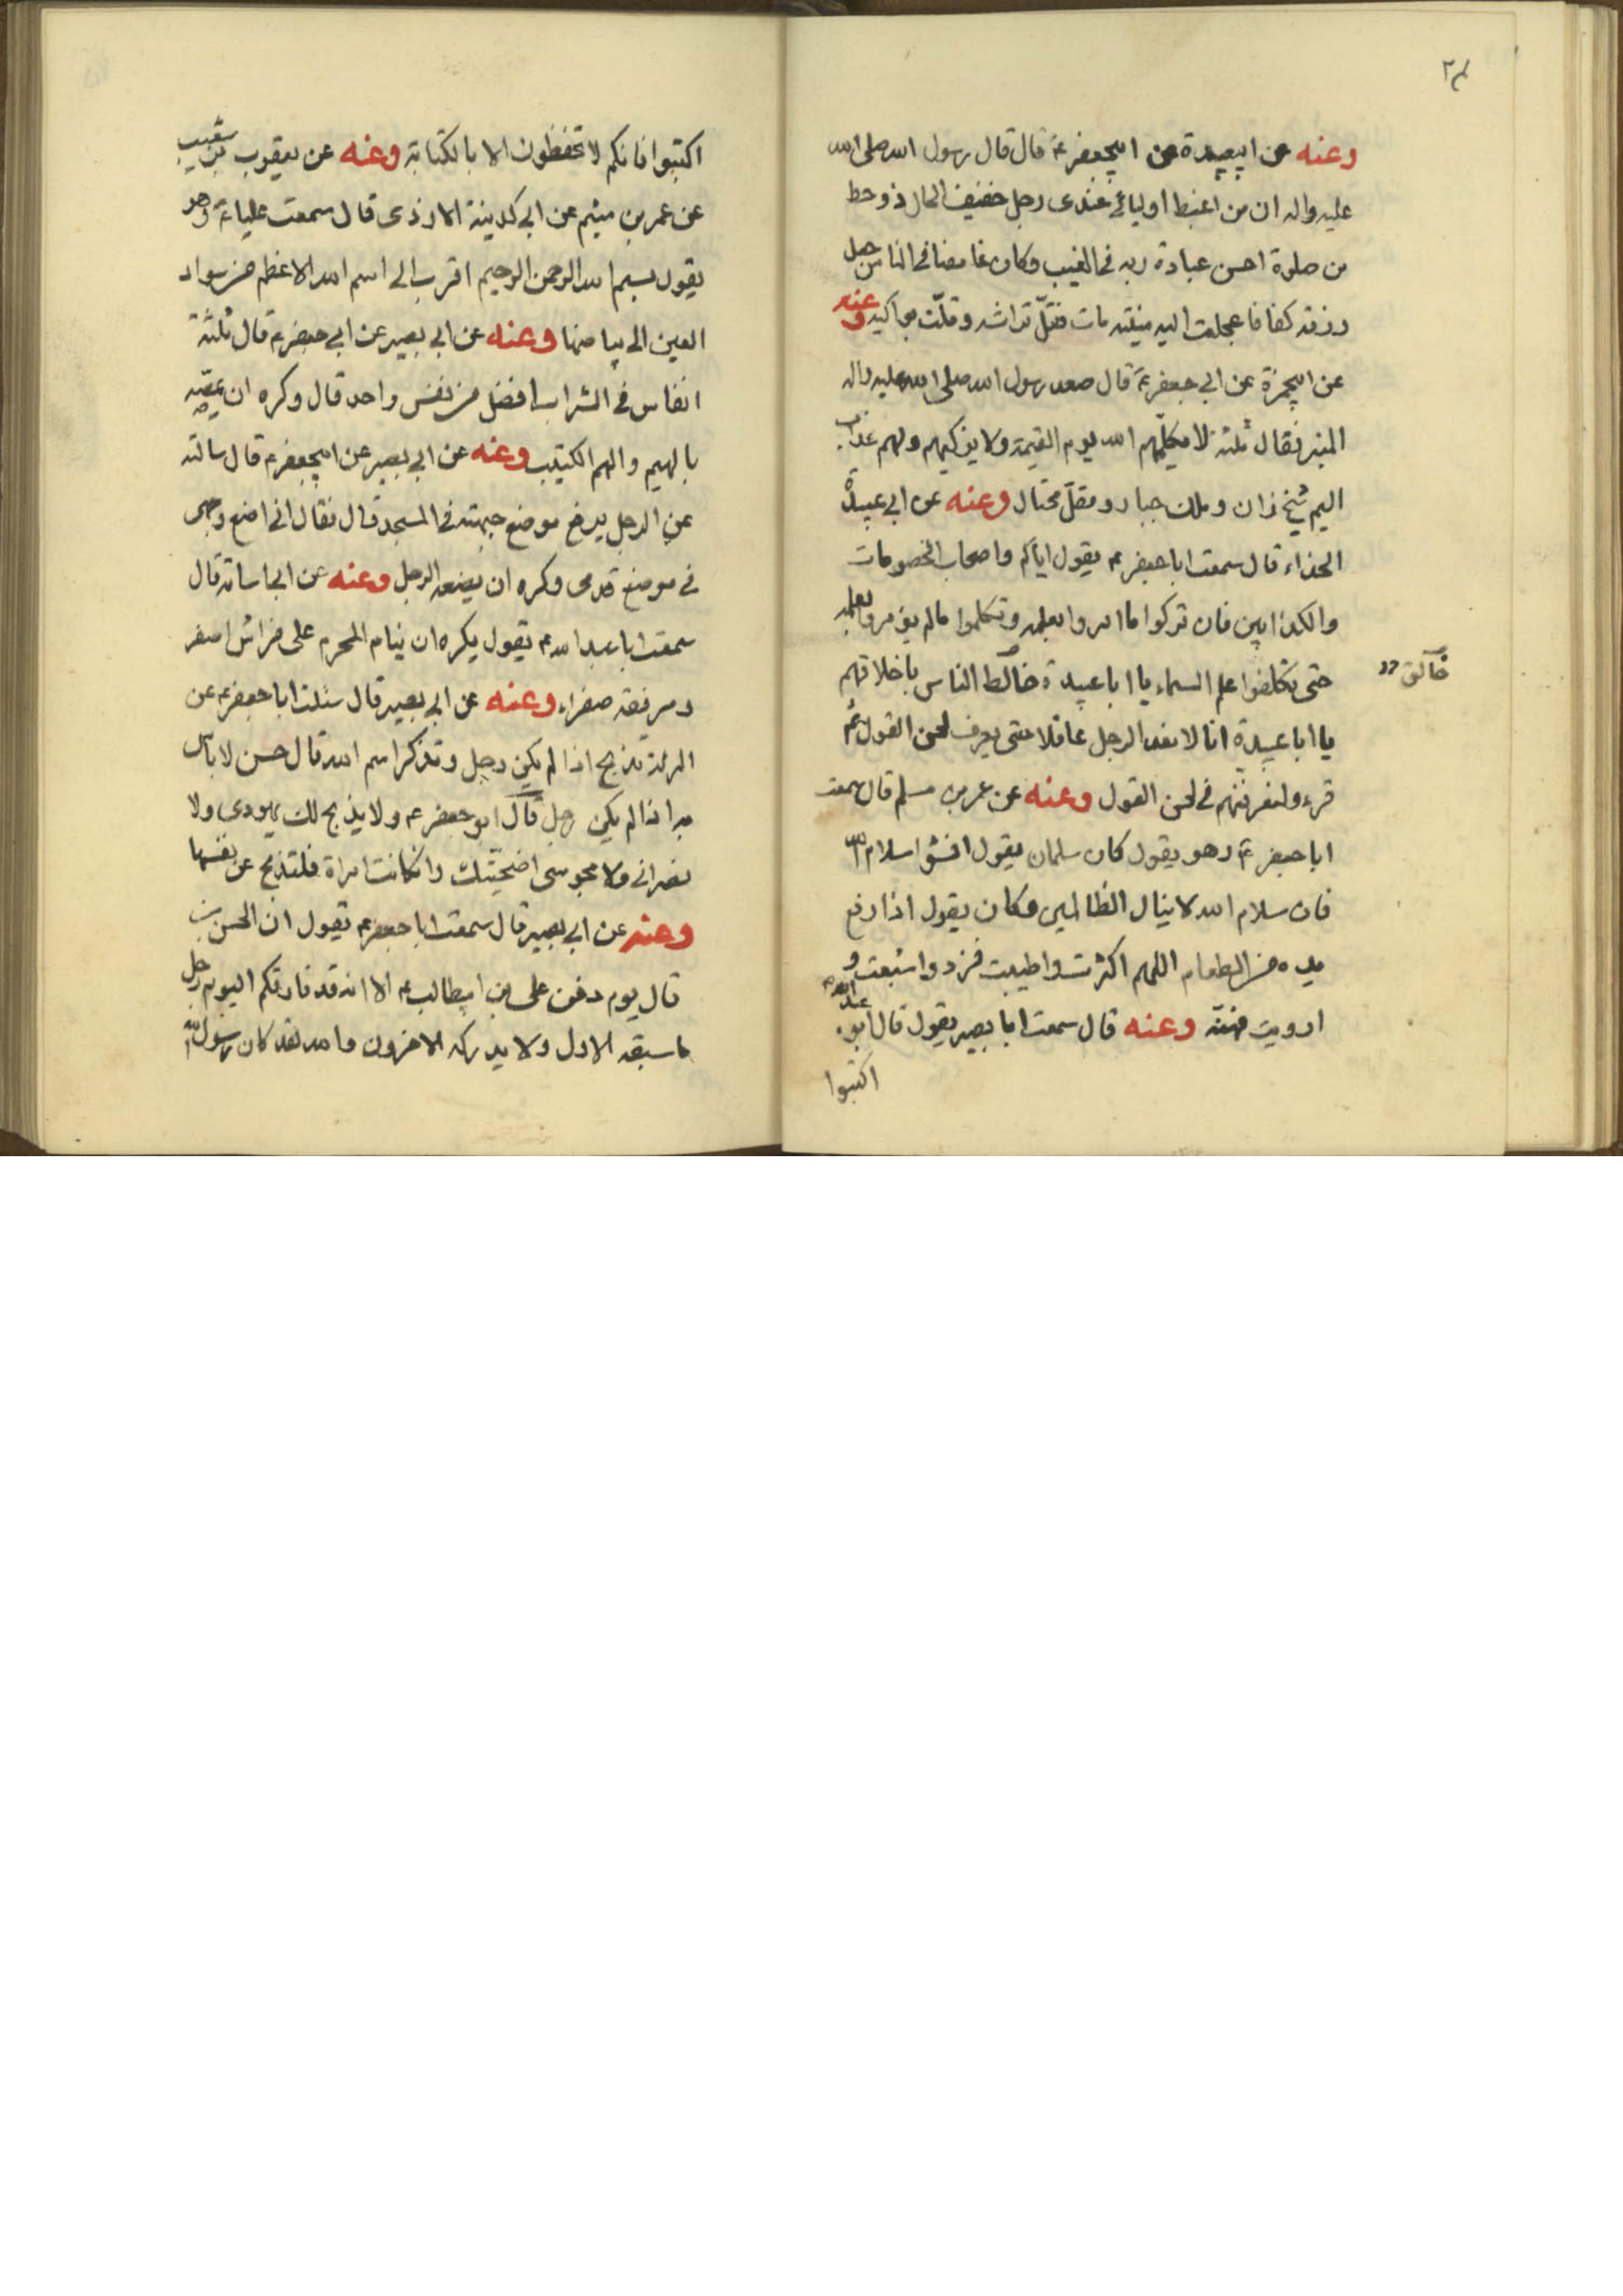 ٢٤
وعنه عن ابيعبيدة عن ابيجعفر ع قال قال رسول الله صلى الله
عليه واله ان من اغبط اوليائى عندى رجل خفيف الحال ذو حظ
من صلوة احسن عبادة ربه فى الغيب وكان غامضا فى الناس جعل
رزقه كفافا عجلت اليه منيته مات فقلّ تراثه وقلّت بواكيه وعنه
عن ابيحمزة عن ابى جعفر ع قال صعد رسول الله صلى الله عليه واله
المنبر فقال ثلثة لا يكلّمهم الله يوم القيمة ولا يزكيهم ولهم عذاب
اليم شيخ زان وملك جبار ومقلّ مختال وعنه عن ابى عبيدة
الحذاء قال سمعت ابا جعفر ع يقول اياكم واصحاب الخصومات
والكذابين فان تركوا ما امروا بعلمه وتكلموا ما لم يؤمروا بعلمه
حتى تكلفوا علم السماء يا ابا عبيدة خالط الناس باخلاقهم
خالق
يا ابا عبيدة انا لا نعد الرجل عاقلا حتى يعرف لحن القول ثم
قرء ولتعرفنهم فى لحن القول وعنه عن عمر بن مسلم قال سمعت
ابا جعفر ع وهو يقول كان سلمان يقول افشوا سلام الله
فان سلام الله لا ينال الظالمين وكان يقول اذا رفع
يده من الطعام اللهم اكثرت واطيبت فزد واشبعت و
ارويت فهنّه وعنه قال سمعت ابا بصير يقول قال ابو عبد الله ع
اكتبوا
اكتبوا فانكم لا تحفظون الا بالكتابة وعنه عن يعقوب بن شعيب
عن عمر بن ميثم عن ابى كدينة الازدى قال سمعت عليا ع وهو
يقول بسم الله الرحمن الرحيم اقرب الى اسم الله الاعظم من سواد
العين الى بياضها وعنه عن ابى بصير عن ابى جعفر ع قال ثلثة
انفاس فى الشراب افضل من نفس واحد قال وكره ان يمصّه
بالهيم والهم الكثيب وعنه عن ابى بصير عن ابيجعفر ع قال سالته
عن الرجل يرفع موضع جبهته فى المسجد قال فقال انى اضع وجهى
فى موضع قدمى وكره ان يضعه الرجل وعنه عن ابى اسامة قال
سمعت ابا عبد الله ع يقول يكره ان ينام المحرم على فراش اصفر
ومرفقة صفراء وعنه عن ابى بصير قال سئلت ابا جعفر ع عن
المرئة تذبح اذا لم يكن رجل وتذكر اسم الله قال حسن لا باس
به اذا لم يكن رجل قال ابو جعفر ع ولا يذبح لك يهودى ولا
نصرانى ولا مجوسى اضحيّتك وانكانت امراة فلتذبح عن نفسها
وعنه عن ابى بصير قال سمعت ابا جعفر ع يقول ان الحسن بن
قال يوم دفن على بن ابيطالب ع الا انه قد فارقكم اليوم رجل
ما سبقه الاول ولا يدركه الاخرون والله لقد كان رسول الله